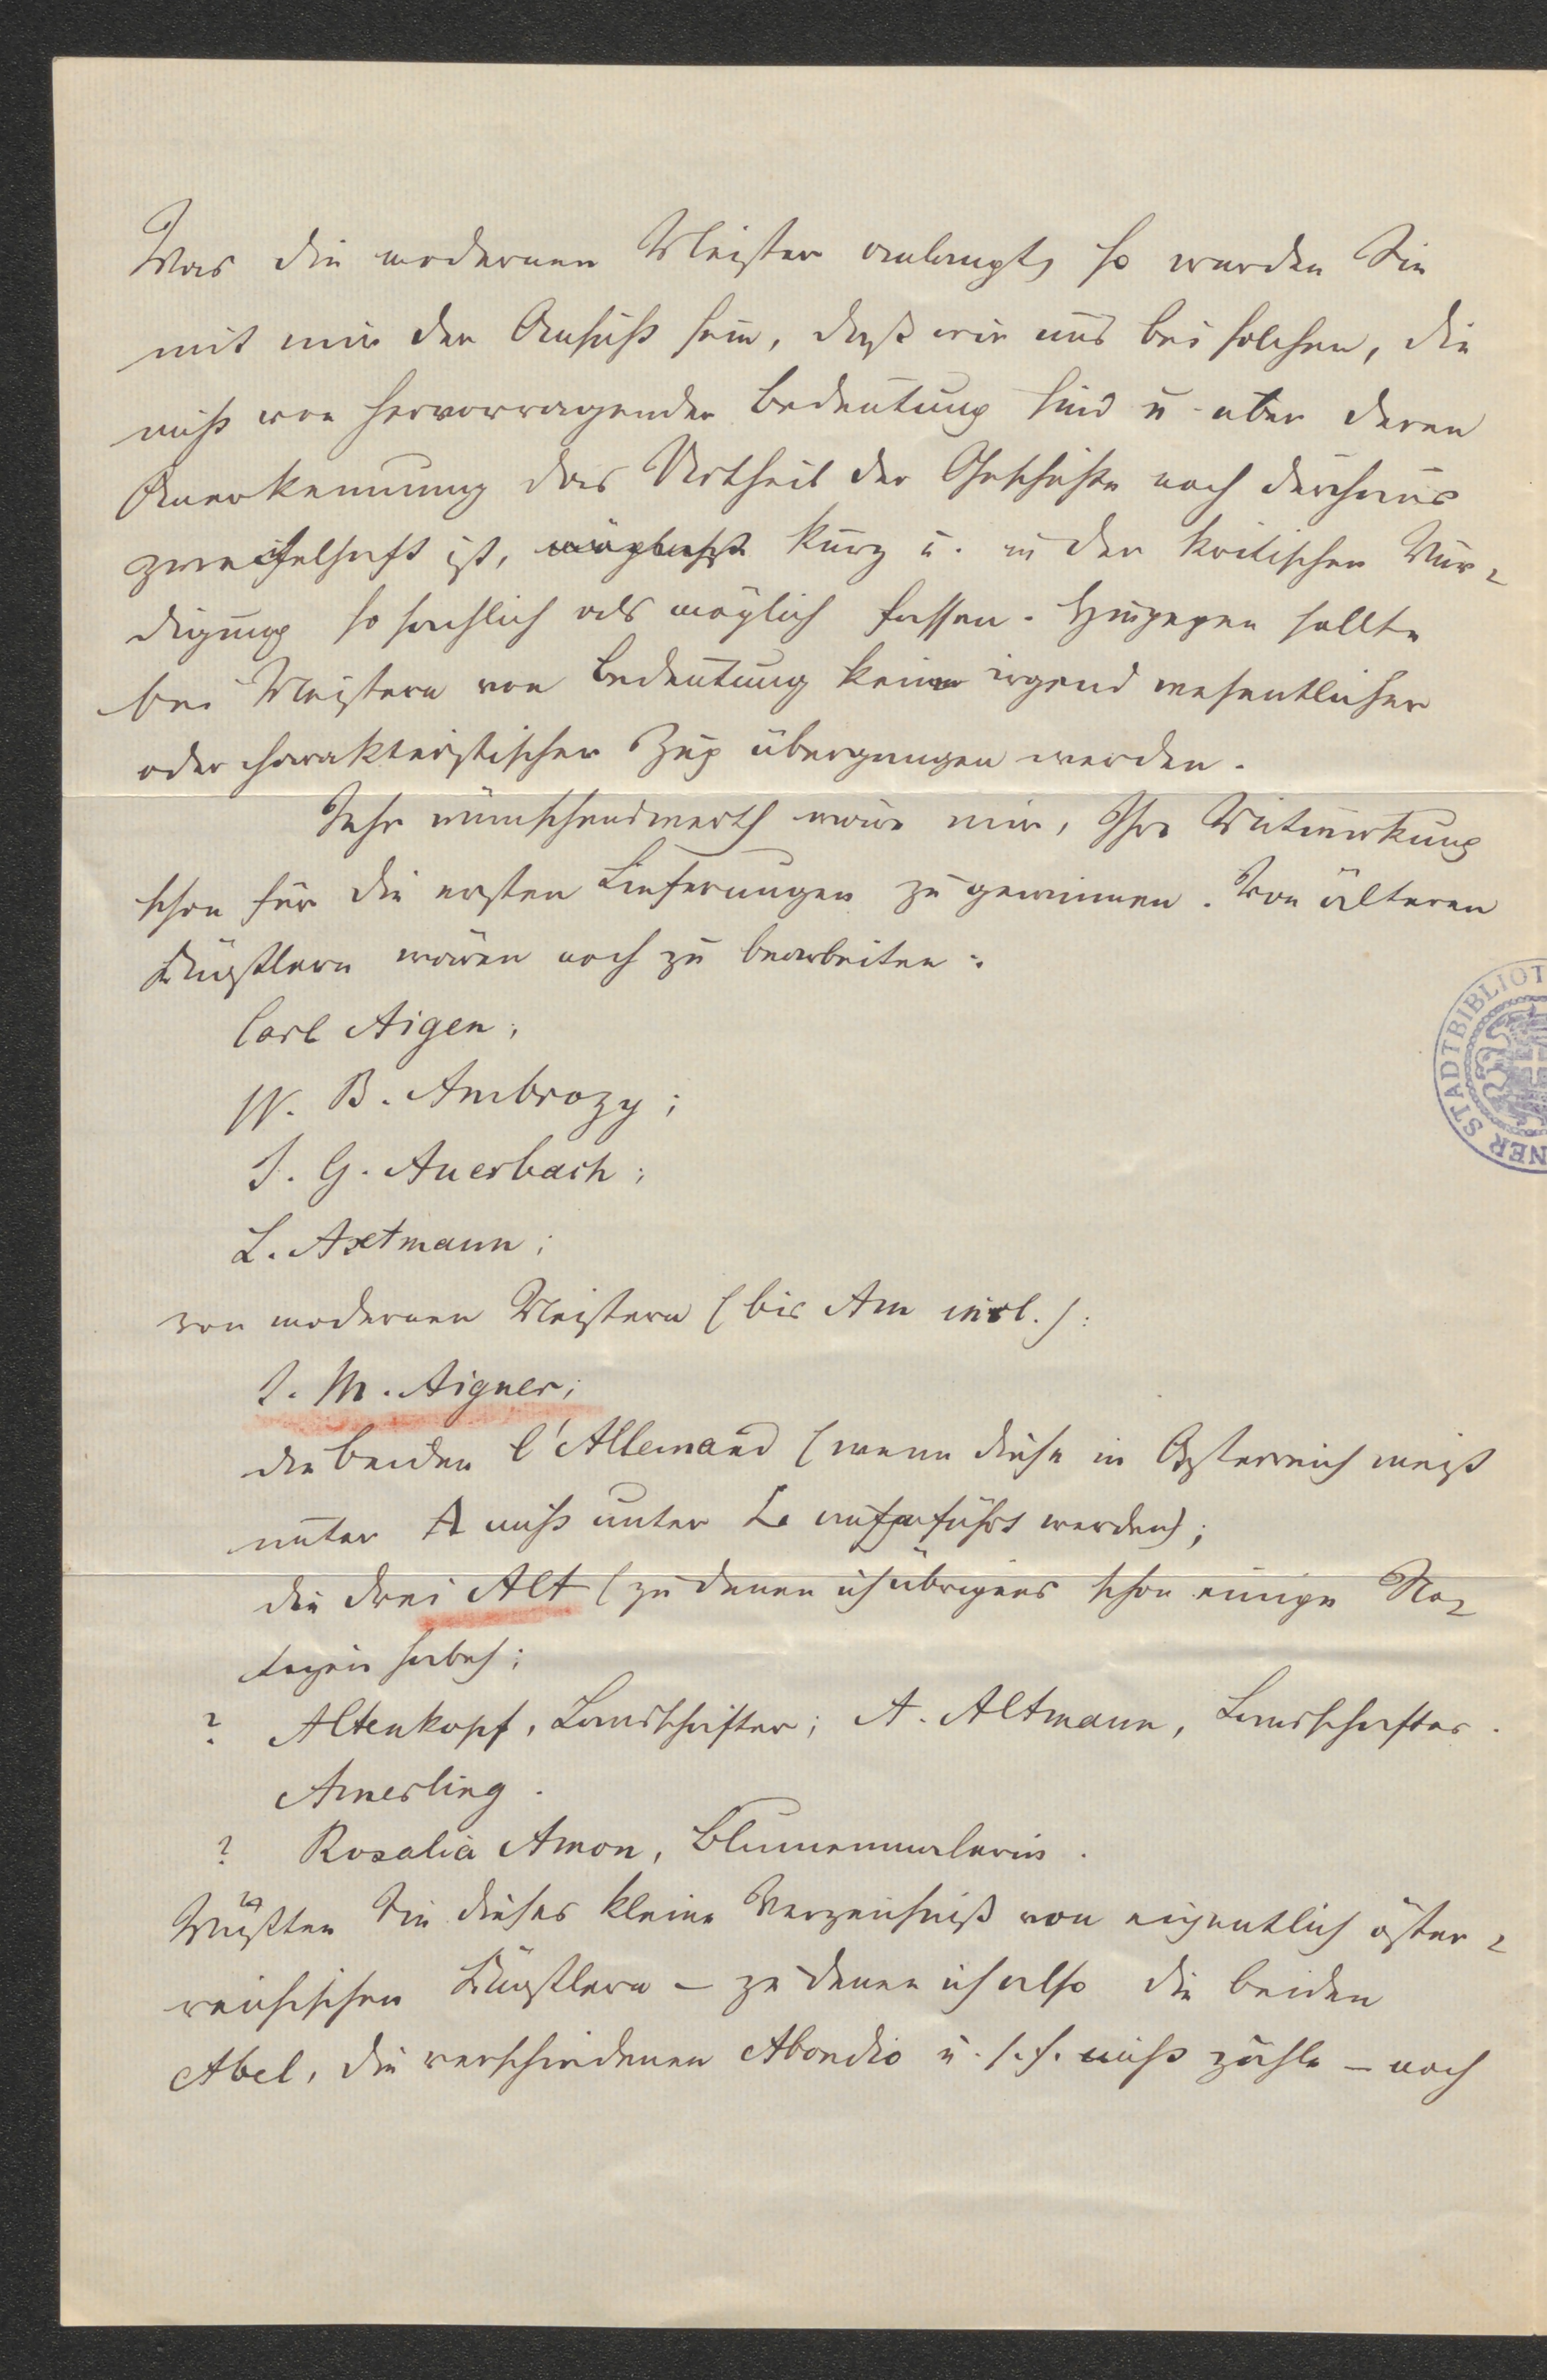 Was die modernen Meister anlangt, so werden Sie
mit mir der Ansicht sein, daß wir uns bei solchen, die
nicht von hervorragender Bedeutung sind u. über deren
Anerkennung das Urtheil der Geschichte noch durchaus
zweifelhaft ist, möglichst kurz u. in der kritischen Wür-
digung so sachlich als möglich fassen. Hingegen sollte
bei Meistern von Bedeutung kein irgend wesentlicher
oder charakteristischer Zug übergangen werden.
Sehr wünschenswerth wäre mir, Ihre Mitwirkung
schon für die ersten Lieferungen zu gewinnen. Von älteren
Künstlern wären noch zu bearbeiten:
Carl Aigen;
W. B. Ambrozy;
J. G. Auerbach;
L. Axtmann;
von modernen Meistern (bis Am incl.):
J. M. Aigner;
die beiden l'Allemand (wenn diese in Österreich meist
unter A nicht unter L aufgeführt werden);
die drei Alt (zu denen ich übrigens schon einige No-
tizen habe);
? Altenkopf, Landschafter; A. Altmann, Landschafter.
Amerling.
? Rosalia Amon, Blumenmalerin.
Wüßten Sie dieses kleine Verzeichniß von eigentlich öster-
reichischen Künstlern – zu denen ich also die beiden
Abel, die verschiedenen Abondio u. s. f. nicht zähle – noch
NER STADTBIBLIOT